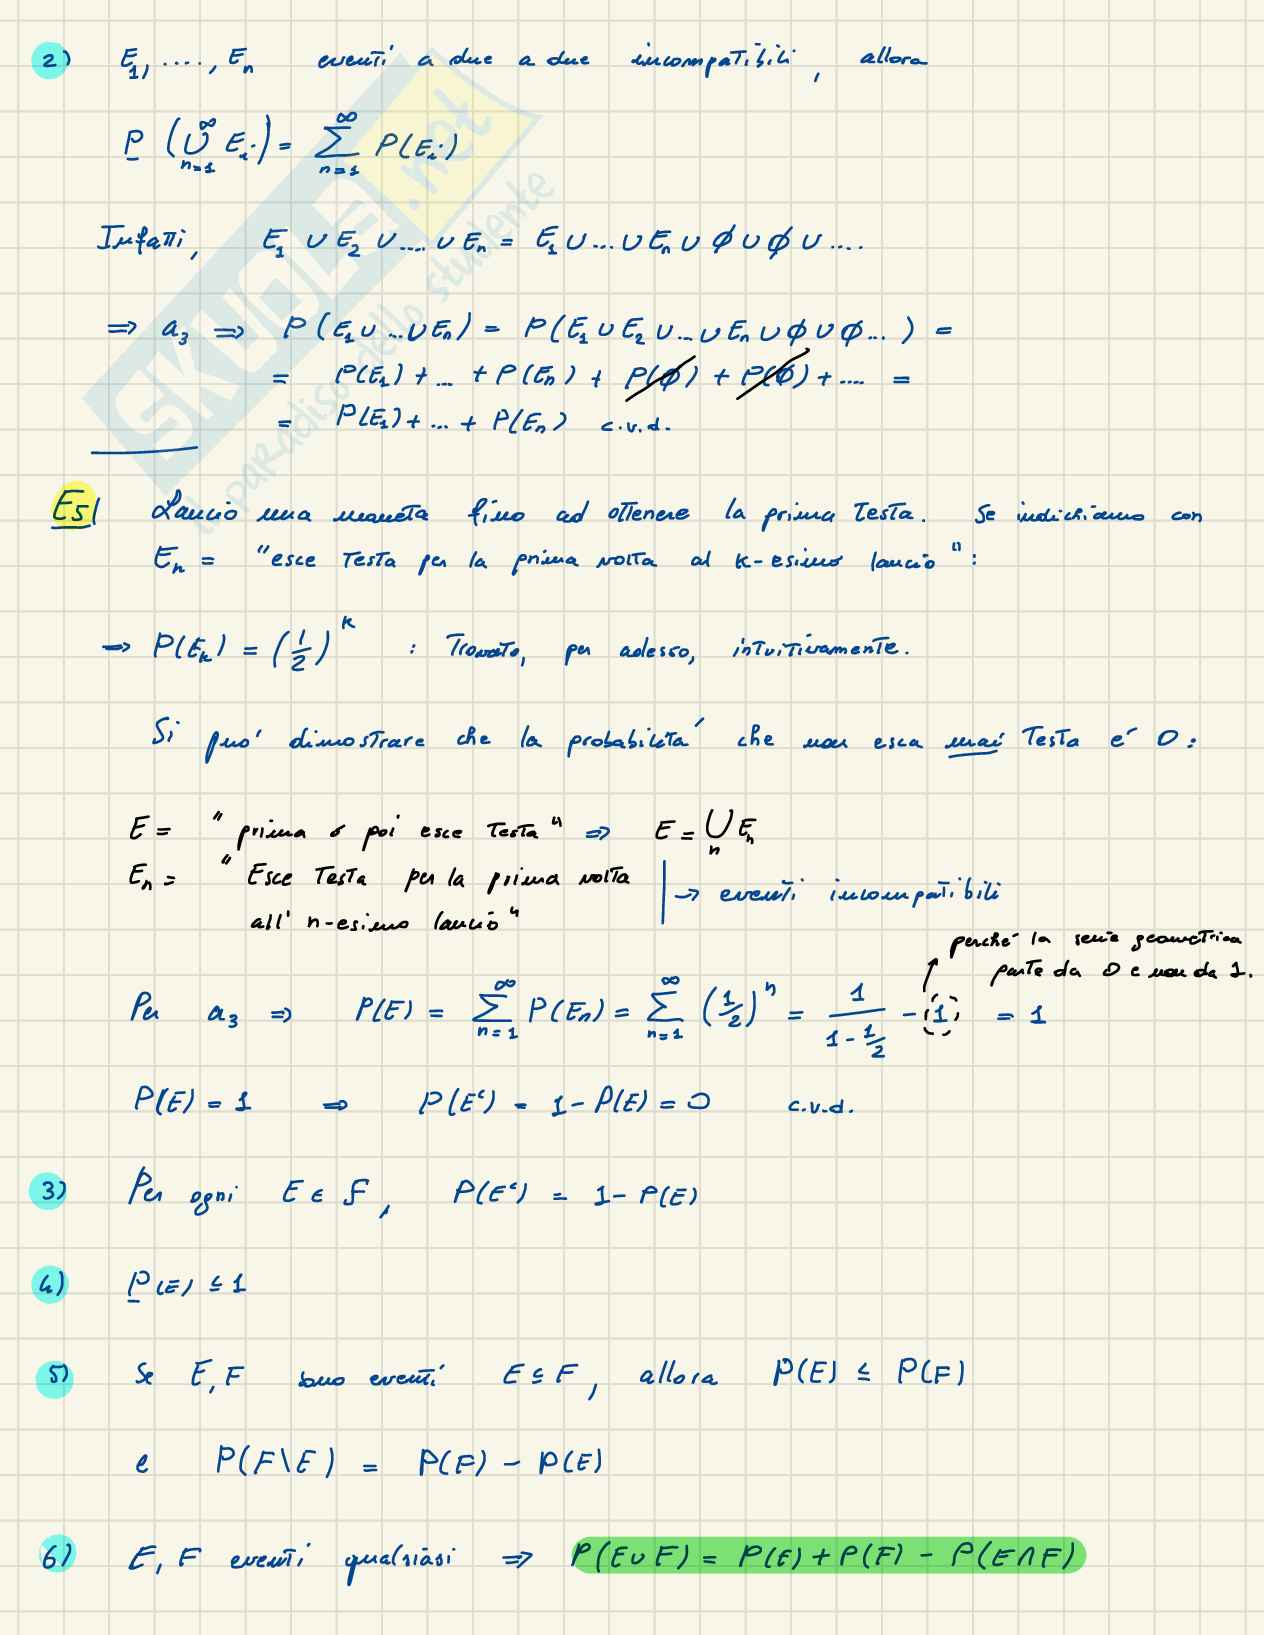 2) E₁, ...., Eₙ eventi a due a due incompatibili, allora
P (⋃_{n=1}^{∞} Eᵢ) = ∑_{n=1}^{∞} P(Eᵢ)
Infatti, E₁ ∪ E₂ ∪ .... ∪ Eₙ = E₁ ∪ ... ∪ Eₙ ∪ ∅ ∪ ∅ ∪ ....
⇒ a₃ ⇒ P(E₁ ∪ ... ∪ Eₙ) = P(E₁ ∪ E₂ ∪ ... ∪ Eₙ ∪ ∅ ∪ ∅ ...) =
= P(E₁) + ... + P(Eₙ) + P(∅) + P(∅) + .... =
= P(E₁) + ... + P(Eₙ) c.v.d.
Es| Lancio una moneta fino ad ottenere la prima testa. Se indichiamo con
Eₙ = "esce testa per la prima volta al k-esimo lancio":
⇒ P(Eₖ) = (1/2)^k : Trovato, per adesso, intuitivamente.
Si può dimostrare che la probabilità che non esca mai testa é 0:
E = "prima o poi esce testa" ⇒ E = ⋃ₙ Eₙ
Eₙ = "Esce Testa per la prima volta
all'n-esimo lancio" | → eventi incompatibili
perché la serie geometrica
parte da 0 e non da 1.
Per a₃ ⇒ P(E) = ∑_{n=1}^{∞} P(Eₙ) = ∑_{n=1}^{∞} (1/2)^n = 1/(1 - 1/2) - 1 = 1
P(E) = 1 ⇒ P(Eᶜ) = 1 - P(E) = 0 c.v.d.
3) Per ogni E ∈ F, P(Eᶜ) = 1 - P(E)
4) P(E) ≤ 1
5) Se E, F sono eventi E ⊆ F, allora P(E) ≤ P(F)
e P(F\E) = P(F) - P(E)
6) E, F eventi qualsiasi ⇒ P(E ∪ F) = P(E) + P(F) - P(E ∩ F)
SKUOLA.net
il paradiso dello studente